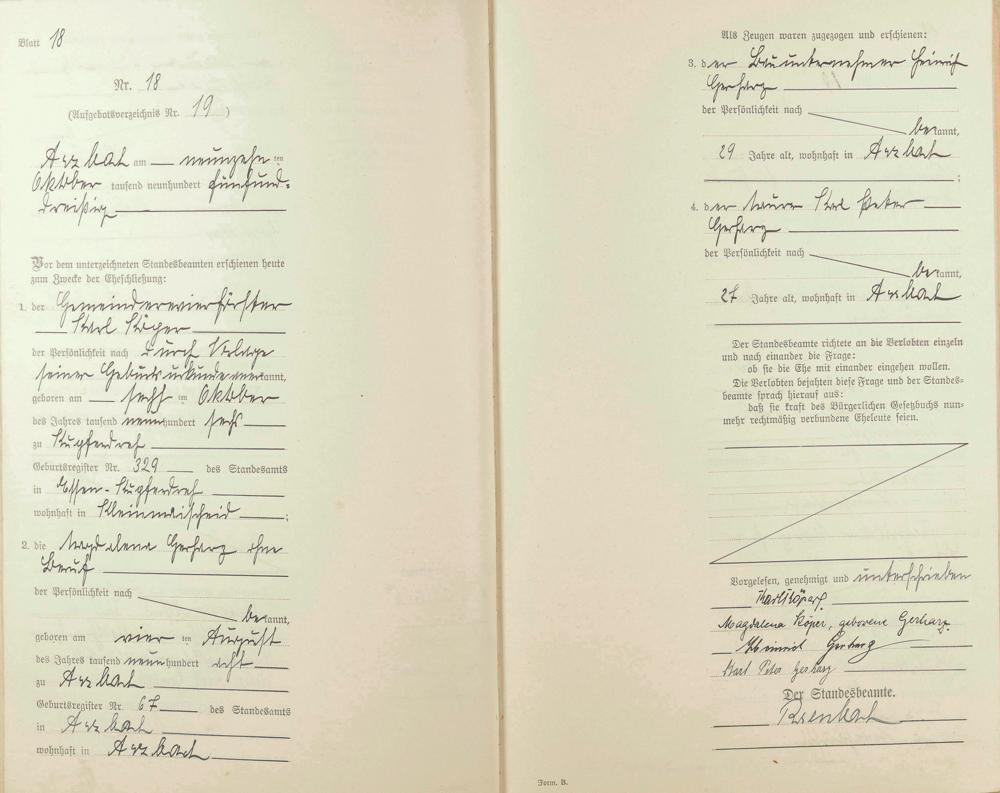 Blatt 18
Nr. 18
(Aufgebotsverzeichnis Nr. 19)
Arzbach am neunzehn ten
Oktober tausend neunhundert fünfund-
dreißig
Vor dem unterzeichneten Standesbeamten erschienen heute
zum Zwecke der Eheschließung:
1. der Gemeinderevierförster
Karl Köper
der Persönlichkeit nach durch Vorlage
seiner Geburtsurkunde anerkannt,
geboren am sechs ten Oktober
des Jahres tausend neunhundert sechs
zu Kupferdreh
Geburtsregister Nr. 329 des Standesamts
in Essen-Kupferdreh
wohnhaft in Kleinmaischeid ;
2. die Magdalena Gerharz ohne
Beruf
der Persönlichkeit nach
bekannt,
geboren am vier ten August
des Jahres tausend neunhundert acht
zu Arzbach
Geburtsregister Nr. 67 des Standesamts
in Arzbach
wohnhaft in Arzbach
Als Zeugen waren zugezogen und erschienen:
3. der Bauunternehmer Heinrich
Gerharz
der Persönlichkeit nach
bekannt,
29 Jahre alt, wohnhaft in Arzbach
;
4. der Maurer Karl Peter
Gerharz
der Persönlichkeit nach
bekannt,
27 Jahre alt, wohnhaft in Arzbach
Der Standesbeamte richtete an die Verlobten einzeln
und nach einander die Frage:
ob sie die Ehe mit einander eingehen wollen.
Die Verlobten bejahten diese Frage und der Standes-
beamte sprach hierauf aus:
daß sie kraft des Bürgerlichen Gesetzbuchs nun-
mehr rechtmäßig verbundene Eheleute seien.
Vorgelesen, genehmigt und unterschrieben
Karl Köper
Magdalena Köper, geborene Gerharz.
Heinrich Gerharz
Karl Peter Gerharz
Der Standesbeamte.
Form. B.